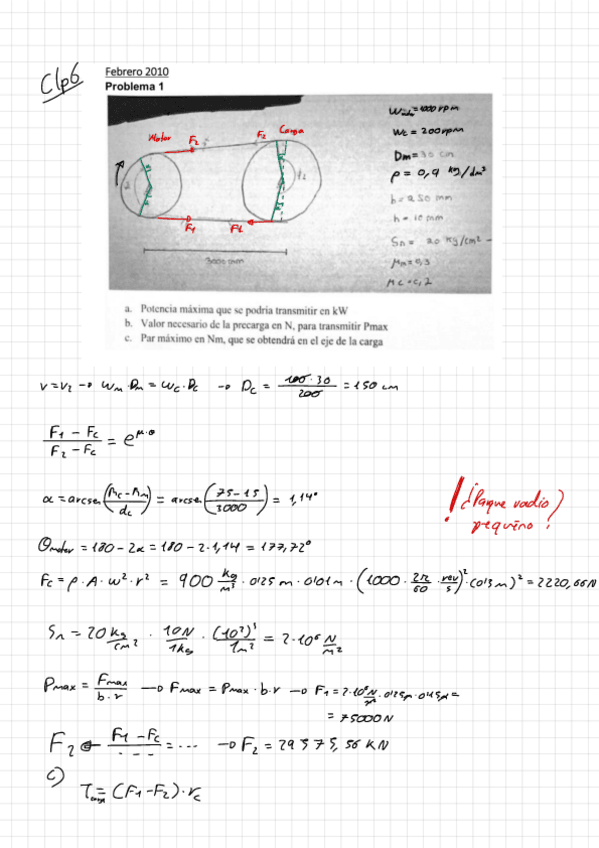 Clp6
Febrero 2010
Problema 1
Motor F2 F2 Carga
F1 F1
3000 mm
= 1000 rpm
Wc = 200 rpm
Dm = 30 cm
ρ = 0,9 kg/dm³
b = 250 mm
h = 10 mm
Sn = 20 kg/cm²
μm = 0,3
μc = 0,2
a. Potencia máxima que se podría transmitir en kW
b. Valor necesario de la precarga en N, para transmitir Pmax
c. Par máximo en Nm, que se obtendrá en el eje de la carga
v = v2 → Wm · Dm = Wc · Dc → Dc = 100·30 / 200 = 150 cm
F1 - Fc / F2 - Fc = e^μ·θ
α = arcsen (rc - rm / dc) = arcsen (75-15 / 3000) = 1,14°
¡¿Paque radio
pequeño?
θmotor = 180 - 2α = 180 - 2·1,14 = 177,72°
Fc = ρ · A · w² · r² = 900 kg/m³ · 0,25 m · 0,01 m · (1000 · 2π/60 · rev/s)² · (0,15 m)² = 2220,66 N
Sn = 20 kg/cm² · 10N/1kg · (10²)²/1m² = 2·10⁶ N/m²
Pmax = Fmax / b·r → Fmax = Pmax · b · r → F1 = 2·10⁶ N/m² · 0,25m · 0,15m =
= 75000 N
F2 ← F1 - Fc / --- = ... → F2 = 29575,56 KN
c)
T carga = (F1 - F2) · rc